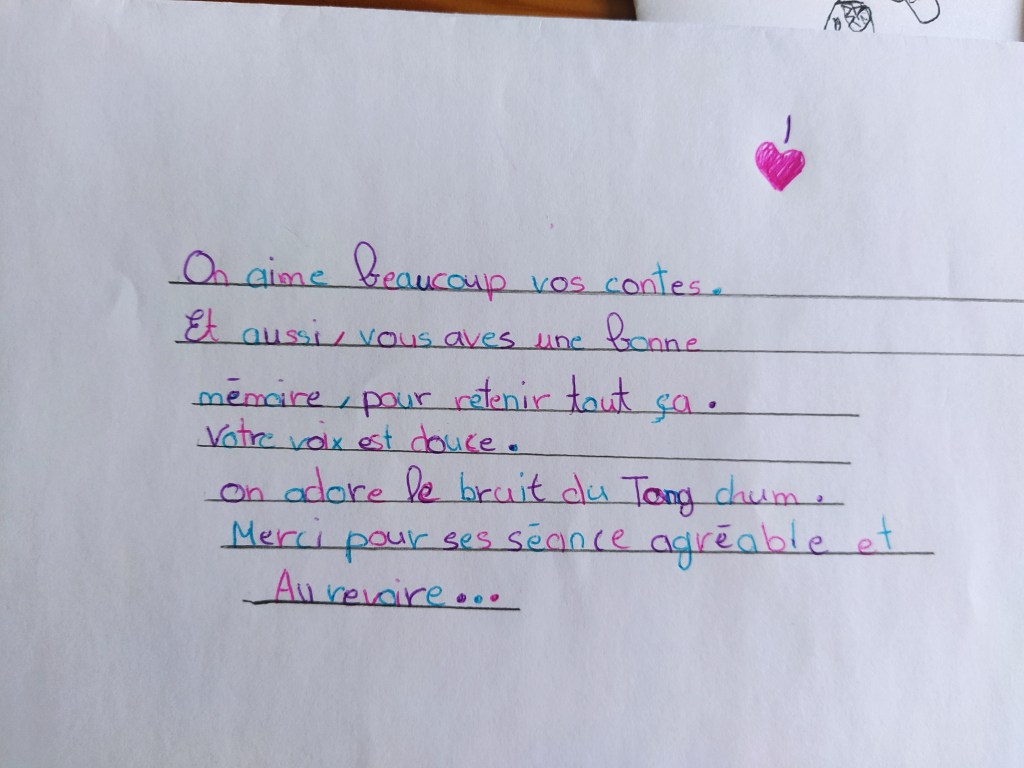 On aime beaucoup vos contes.
Et aussi, vous aves une bonne
mémoire, pour retenir tout ça.
Votre voix est douce.
on adore le bruit du Tang chum.
Merci pour ses séance agréable et
Au revoire...